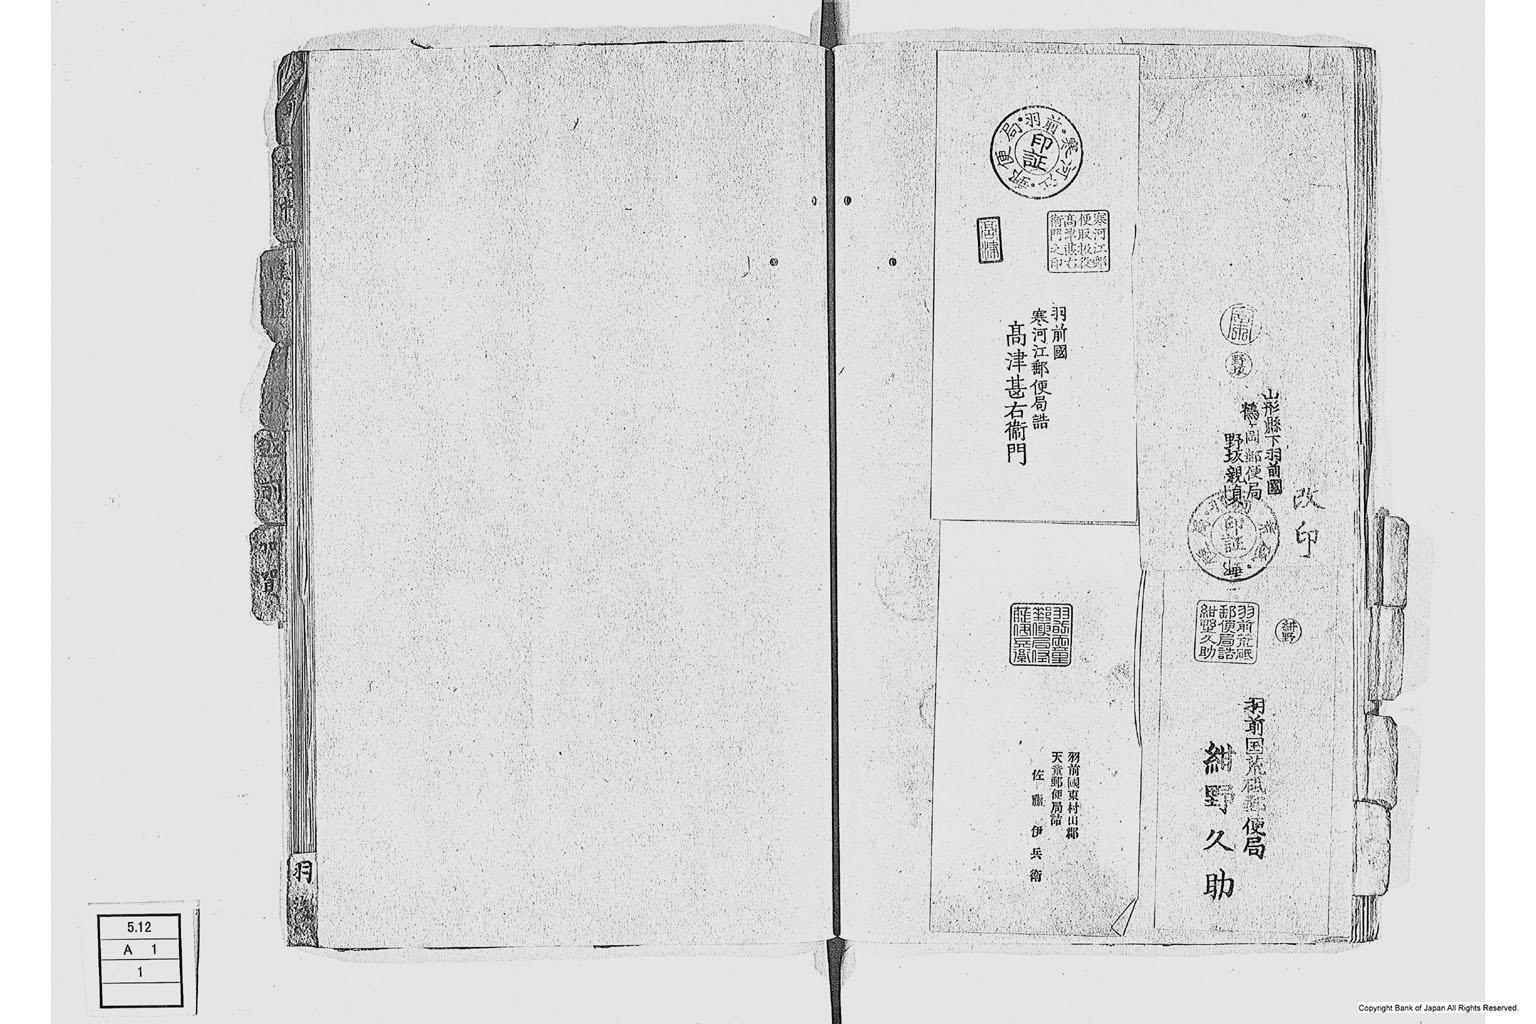 改印
山形縣下羽前國
鶴ケ岡郵便局
野坂親愼
野坂
印証
紺野
羽前荒砥
郵便局詰
紺野久助
羽前国荒砥郵便局
紺野久助
羽前・寒河江・郵便局・
印証
寒河江郵
便取扱役
高津甚右
衛門之印
高津
羽前國
寒河江郵便局詰
髙津甚右衞門
羽前國東村山郡
天童郵便局詰
佐藤伊兵衛
越前
加賀
羽
5.12
A 1
1
Copyright Bank of Japan All Rights Reserved.